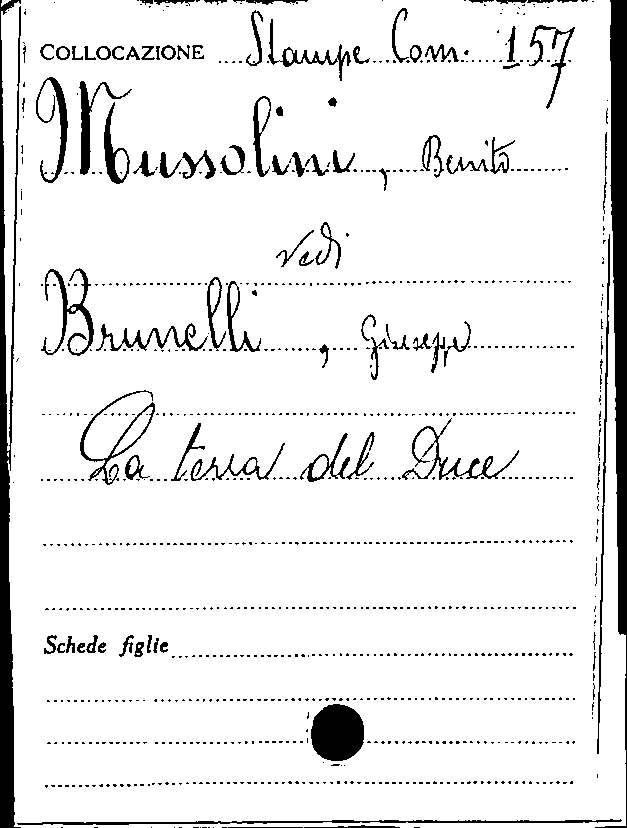 COLLOCAZIONE Stampe Com. 157
Mussolini, Benito
vedi
Brunelli, Giuseppe
La terra del Duce
Schede figlie